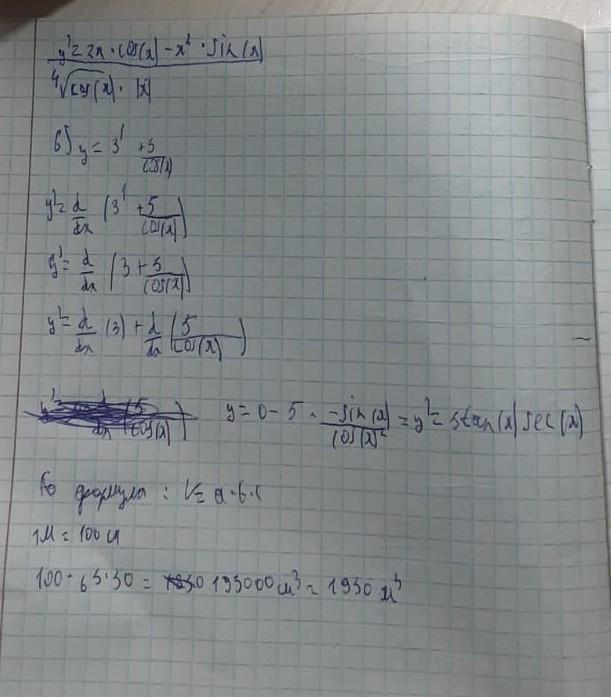 y' = 2x · cos(x) - x² · sin(x)
⁴√cos(x) · |x|
б) y = 3¹ + 5
cos(x)
y' = d/dx (3¹ + 5/cos(x))
y' = d/dx (3 + 5/cos(x))
y' = d/dx (3) + d/dx (5/cos(x))
y = 0 - 5 · -sin(x)/cos(x)² = y' = 5tan(x) sec(x)
формула : V = a·b·c
1м = 100 см
100 · 65·30 = 195000 см³ = 1950 м³